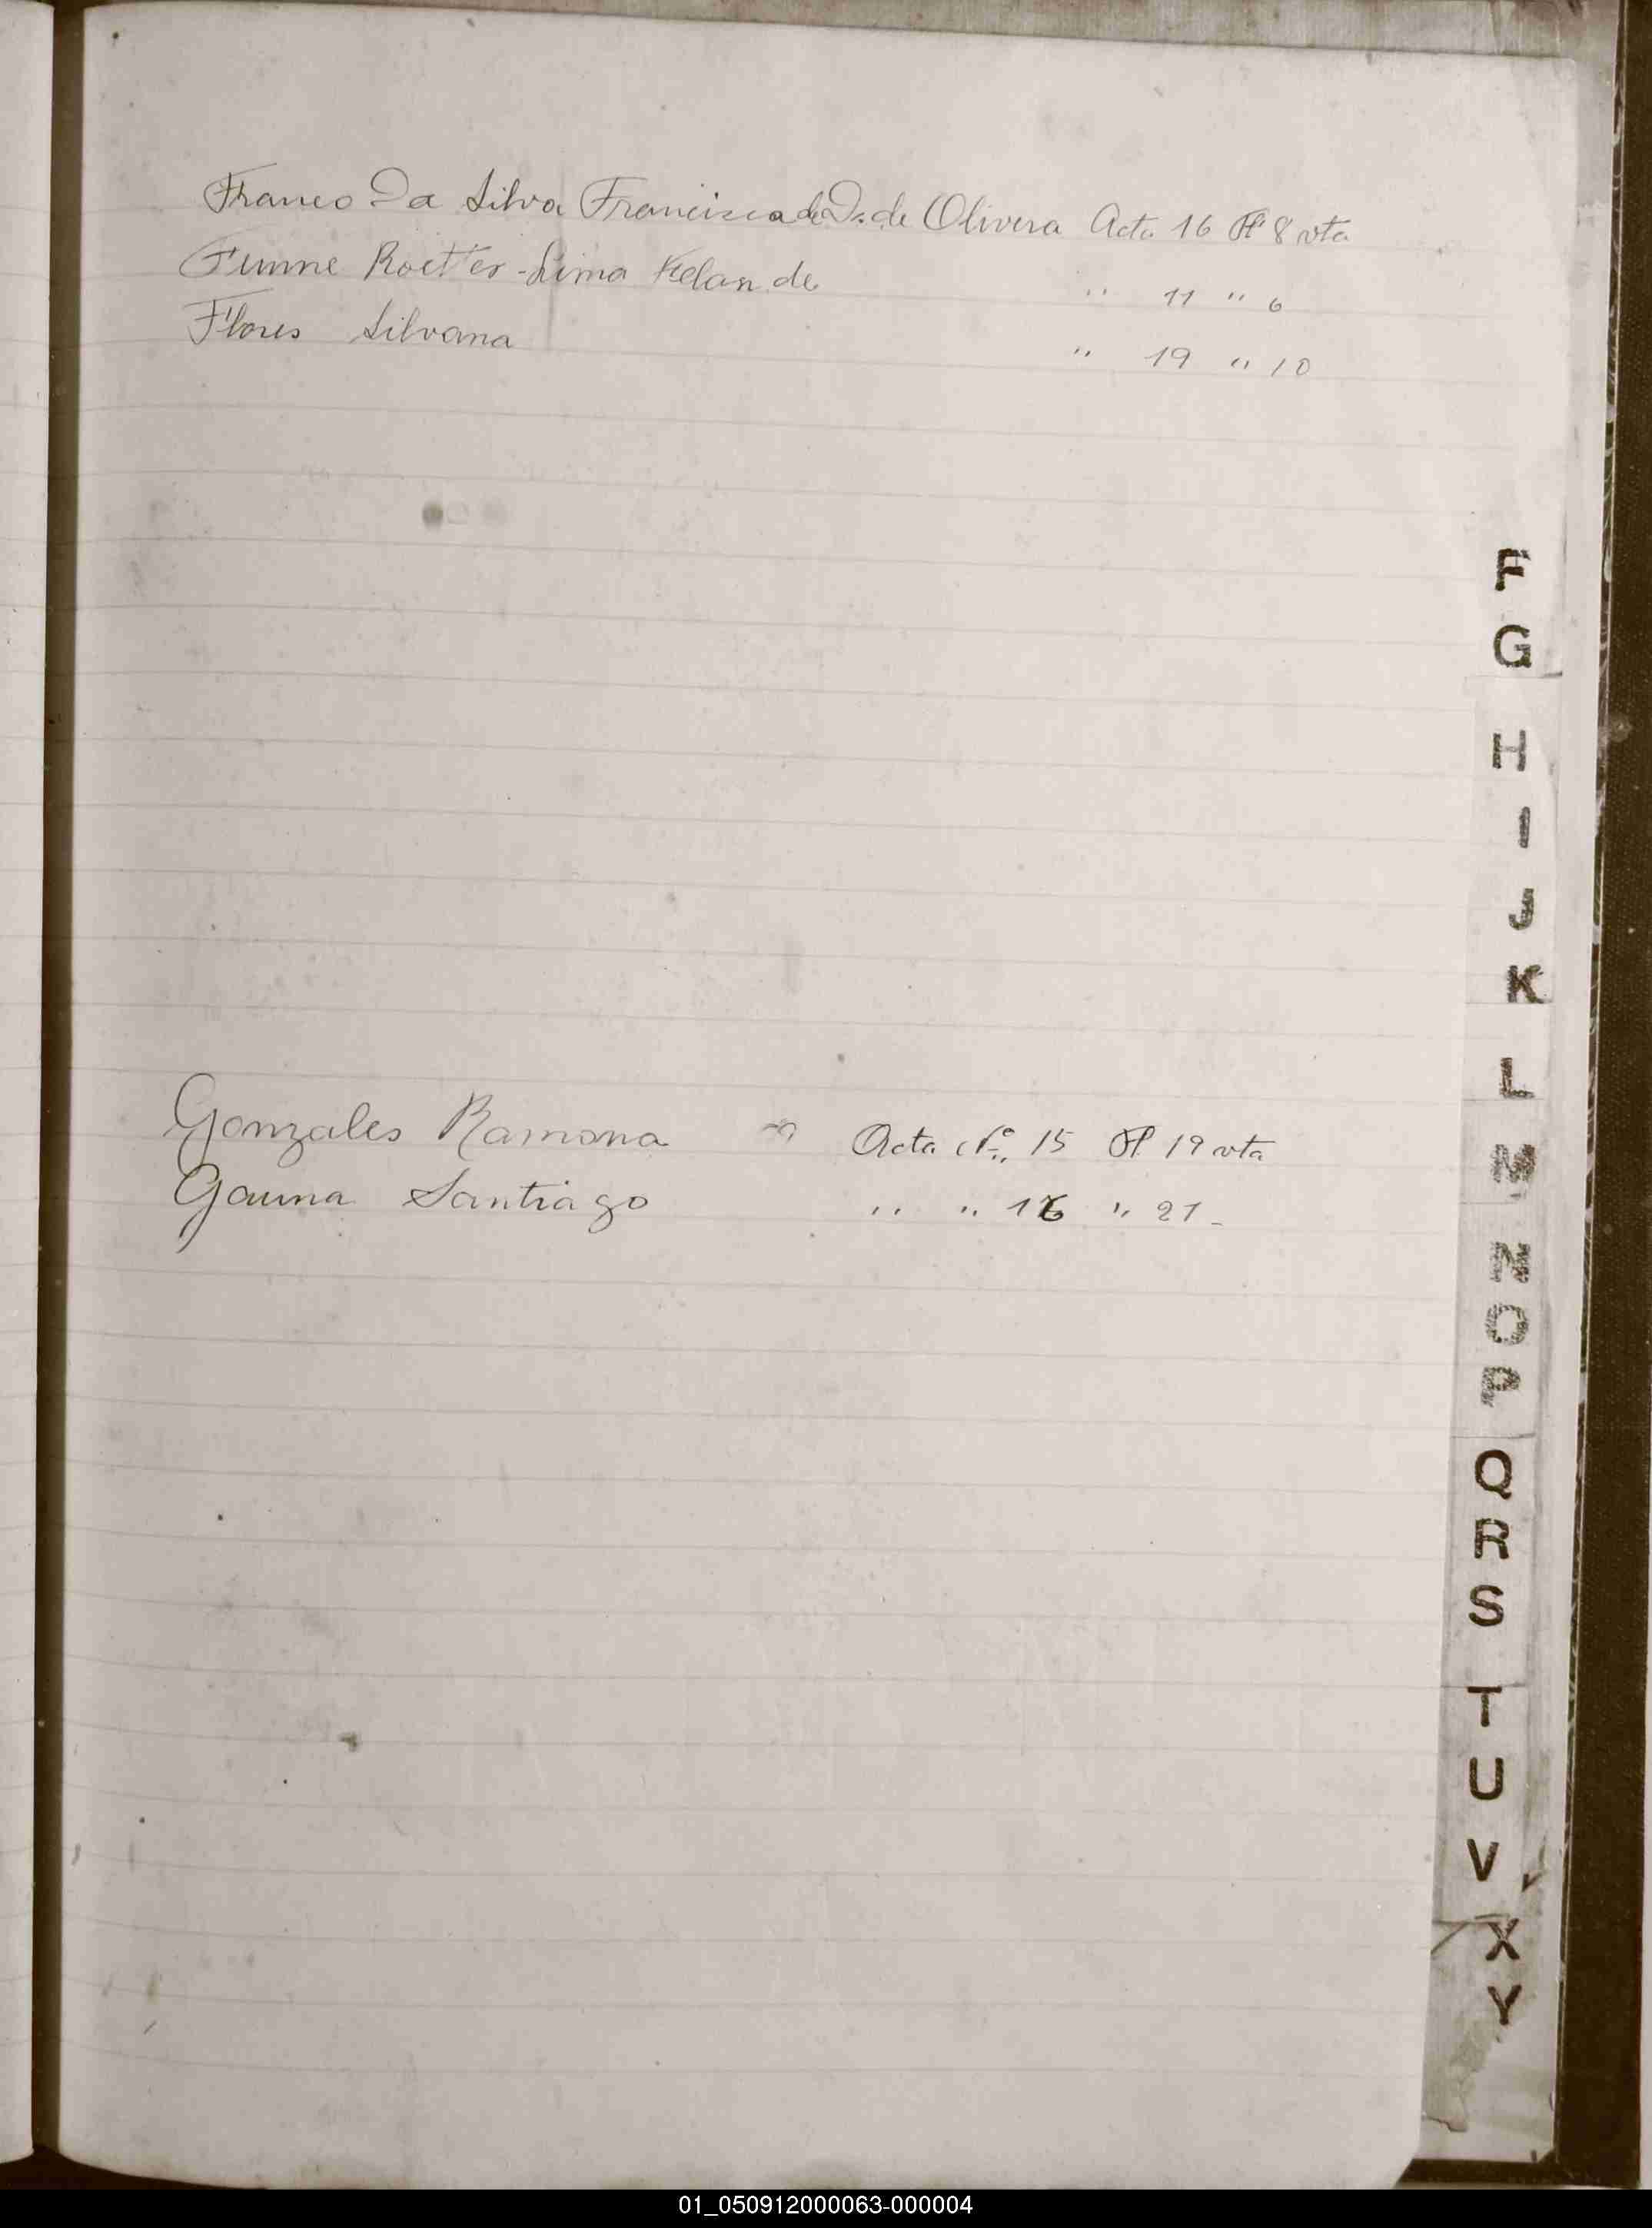 Franco Da Silva Francisca de D. de Olivera Acta 16 Fº 8 vta
Roetter - Lima de
" 11 " 6
Flores Silvana
" 19 " 10
F
G
H
I
J
K
L
M
N
O
P
Q
R
S
T
U
V
X
Y
Gonzales Ramona Acta Nº 15 Fº 19 vta
Gauna Santiago " " 16 " 21 -
01_050912000063-000004